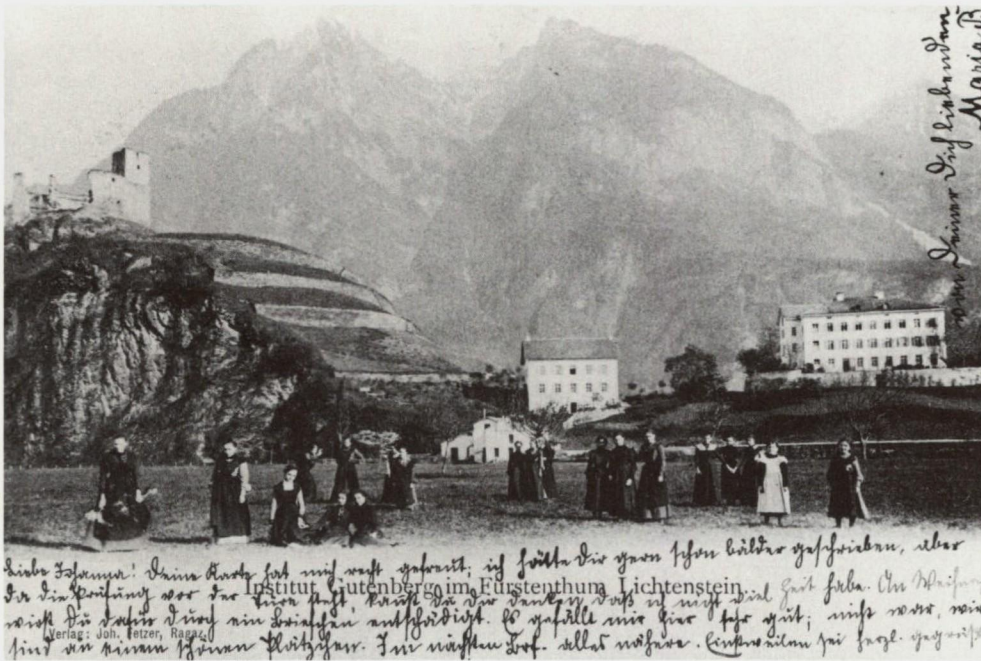 Liebe Johanna! Deine Karte hat mich recht gefreut; ich hätte Dir gern schon bälder geschrieben, aber
Institut Gutenberg im Fürstenthum Lichtenstein
da die Prüfung vor der Türe steht, kannst Du Dir denken, daß ich nicht viel Zeit habe. An Weihn
wirst Du dafür durch ein Briefchen entschädigt. Es gefällt mir hier sehr gut; nicht war, wir
Verlag: Joh. Fetzer, Ragaz.
sind an einem schönen Plätzchen. Im nächsten Brf. alles nähere. Einstweilen sei herzl. gegrüßt
von Deiner Dich liebenden
Maria B